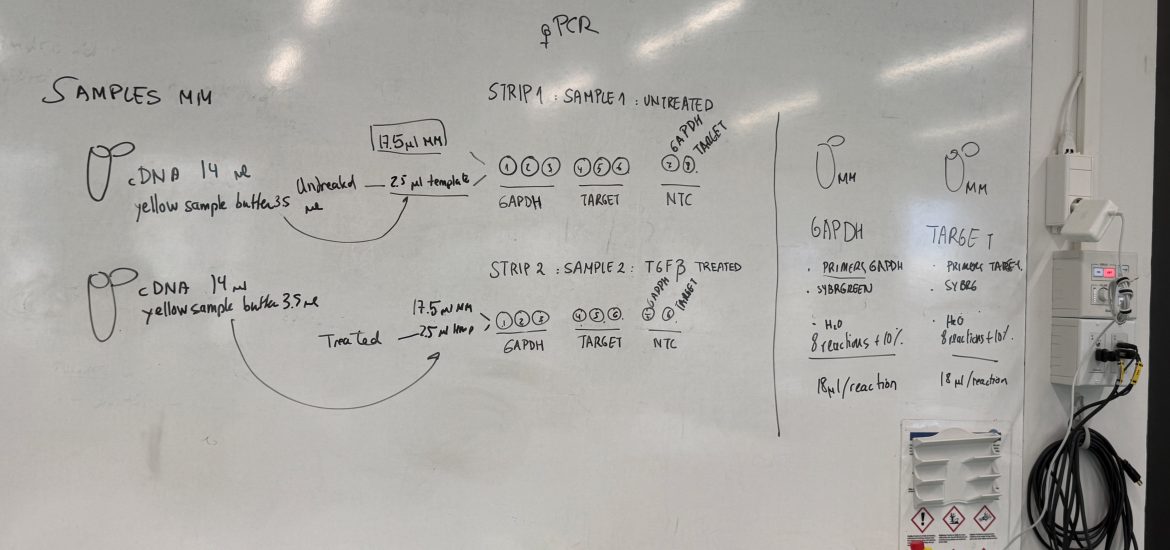 qPCR
SAMPLES MM
cDNA 14 µl
yellow sample buffer 3.5 µl
Untreated
17.5 µl MM
2.5 µl template
STRIP 1 : SAMPLE 1 : UNTREATED
GAPDH
TARGET
1 2 3 4 5 6 7 8
GAPDH TARGET NTC
cDNA 14 µl
yellow sample buffer 3.5 µl
Treated
17.5 µl MM
2.5 µl
STRIP 2 : SAMPLE 2 : TGFβ TREATED
GAPDH
TARGET
1 2 3 4 5 6 7 8
GAPDH TARGET NTC
MM
GAPDH
. PRIMERS GAPDH
. SYBRGREEN
. H2O
8 reactions + 10%
18 µl/reaction
MM
TARGET
. PRIMERS TARGET
. SYBRG
. H2O
8 reactions + 10%.
18 µl/reaction